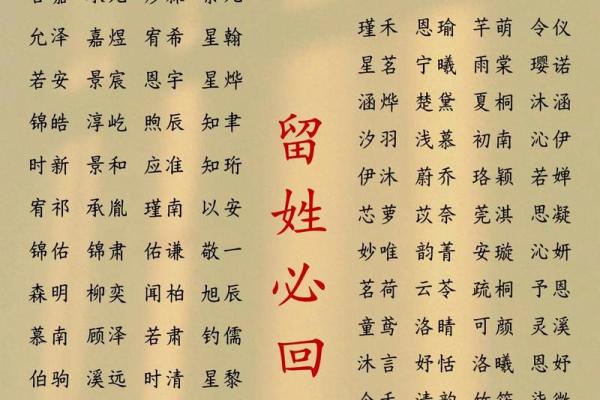 允泽 嘉煜 宥希 星翰
若安 景宸 恩宇 星烨
锦皓 淳屹 煦辰 知聿
时新 景和 应准 知珩
宥祁 承胤 瑾南 以安
锦佑 锦肃 佑谦 敬一
森明 柳奕 闻柏 旭辰
慕南 顾泽 若肃 钓儒
伯驹 溪远 时清 星黎
留姓必回
瑾禾 恩瑜 芊萌 令仪
星茗 宁曦 雨棠 璎诺
涵烨 楚黛 夏桐 沐涵
汐羽 浅慕 初南 沁伊
伊沐 蔚乔 珞颖 若婵
芯萝 苡奈 莞淇 思凝
妙唯 韵菁 安璇 沁妍
茗荷 云苓 疏桐 予恩
童鸢 洛晴 可颜 灵溪
沐言 妤恬 洛曦 恩妤